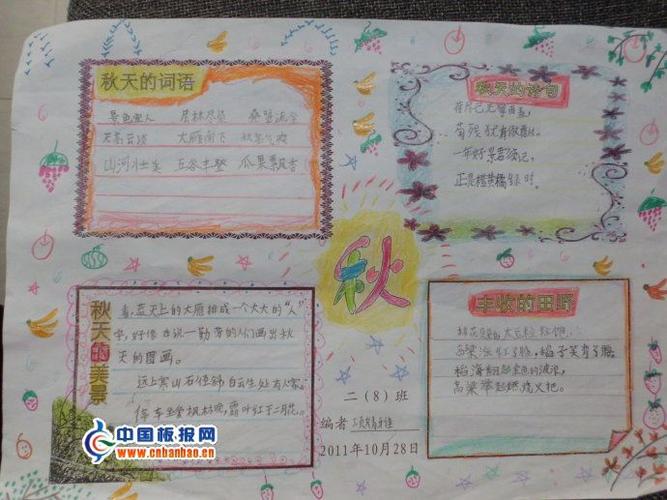 秋天的词语
景色宜人 层林尽染
天高云淡 大雁南飞 秋高气爽
山河壮美 五谷丰登 瓜果飘香
秋天的诗句
荷尽已无擎雨盖，
菊残犹有傲霜枝。
一年好景君须记，
正是橙黄橘绿时。
秋
秋天的美景
看，蓝天上的大雁排成一个大大的“人”
字，好像在说一勤劳的人们画出秋
天的图画。
远上寒山石径斜，白云生处有人家。
停车坐爱枫林晚，霜叶红于二月花。
丰收的田野
棉花 大豆粒粒饱，
高粱涨红了脸，稻子笑弯了腰
稻海翻起金色的波浪，
高粱举起燃烧火把。
二（8）班
编者
2011年10月28日
中国板报网
www.cnbanbao.cn